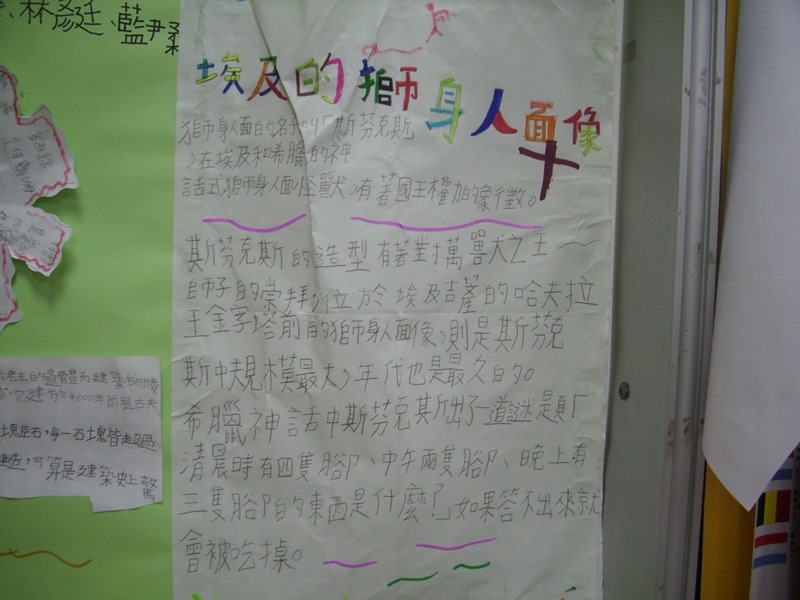 林彥廷、藍尹柔
埃及的獅身人面像
獅身人面的名子叫「斯芬克斯
，在埃及和希臘的神
話式獅身人面怪獸，有著國王權加的像徵。
斯芬克斯的造型有著對萬獸之王
師子的崇拜，位於埃及吉薩的哈夫拉
王金字塔前的獅身人面像，則是斯芬克
斯中規模最大，年代也是最久的。
希臘神話中斯芬克斯出了一道謎題「
清晨時有四隻腳、中午兩隻腳、晚上有
三隻腳的東西是什麼?」如果答不出來就
會被吃掉。
老王的遺體而建築的陵
它建於4600年前是古夫
塊巨石，每一石塊皆超過
建造，可算是建築史上驚